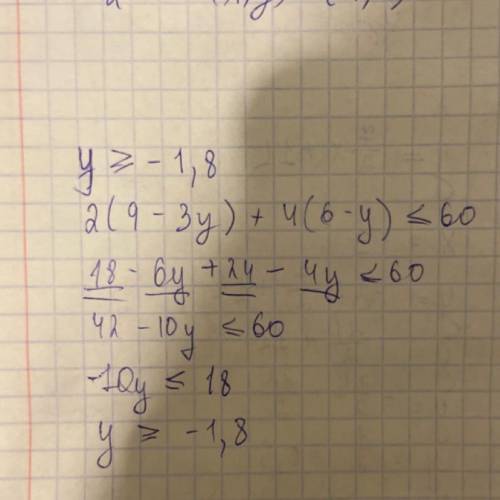 y ≥ -1,8
2(9 - 3y) + 4(6 - y) ≤ 60
18 - 6y + 24 - 4y < 60
42 - 10y ≤ 60
-10y ≤ 18
y ≥ -1,8